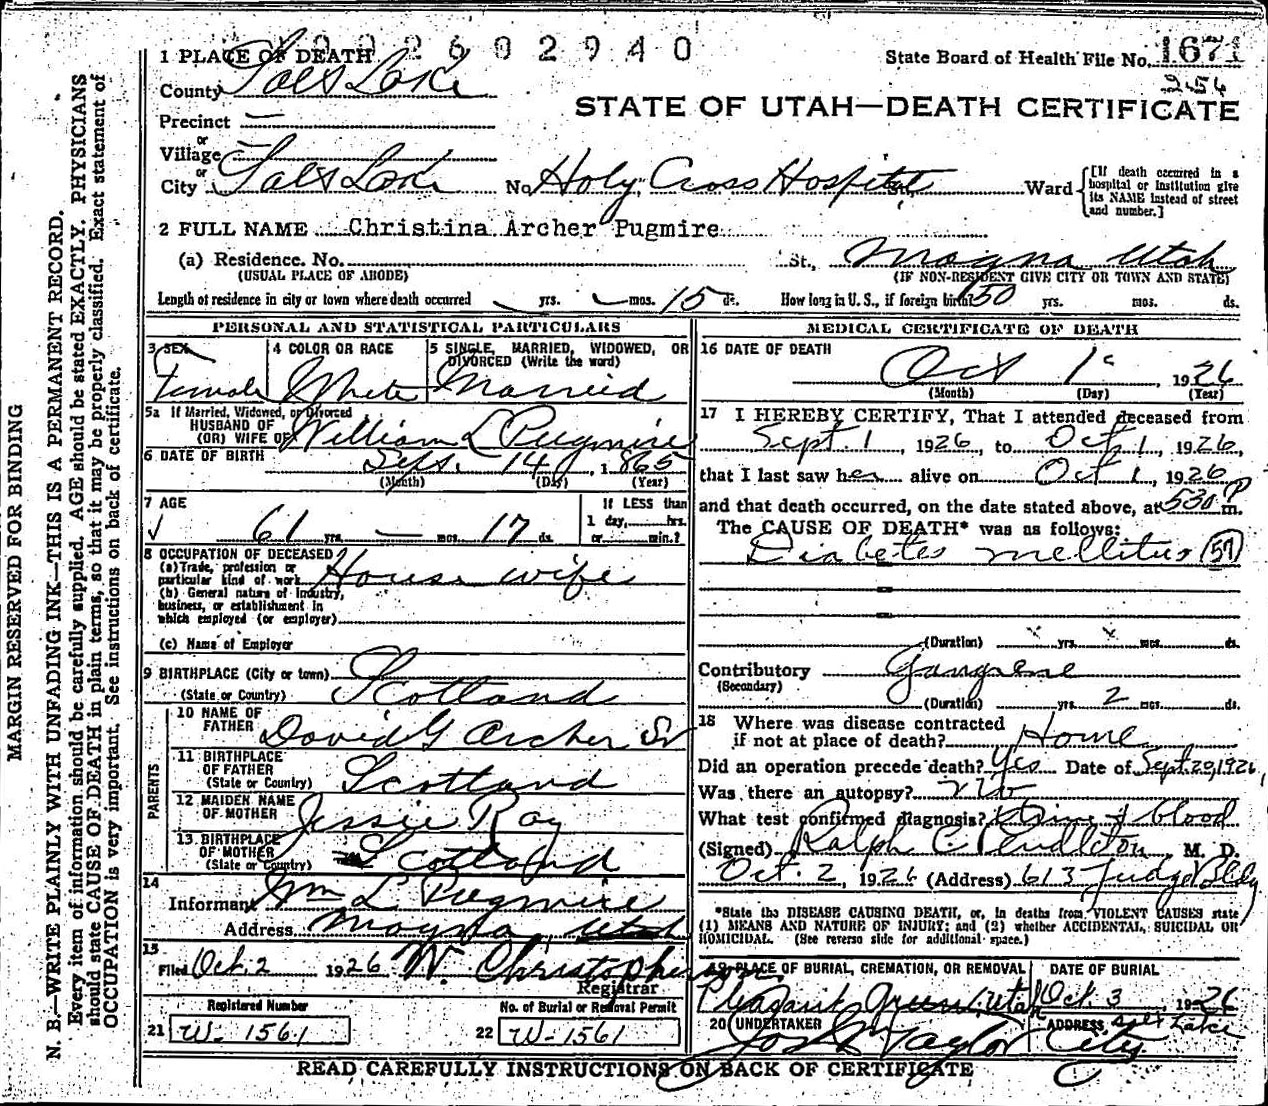 002602940
1 PLACE OF DEATH
State Board of Health File No. 1671
254
County Salt Lake
STATE OF UTAH—DEATH CERTIFICATE
Precinct —
or
Village —
or
City Salt Lake No. Holy Cross Hospital St., Ward [If death occurred in a hospital or institution give its NAME instead of street and number.]
2 FULL NAME Christina Archer Pugmire
(a) Residence. No. St., Magna Utah
(USUAL PLACE OF ABODE) (IF NON-RESIDENT GIVE CITY OR TOWN AND STATE)
Length of residence in city or town where death occurred yrs. mos. 15 ds. How long in U. S., if foreign birth? 50 yrs. mos. ds.
PERSONAL AND STATISTICAL PARTICULARS
3 SEX 4 COLOR OR RACE 5 SINGLE, MARRIED, WIDOWED, OR
DIVORCED (Write the word)
Female White Married
5a If Married, Widowed, or Divorced
HUSBAND OF
(OR) WIFE OF William L Pugmire
6 DATE OF BIRTH Sept. 14, 1865
(Month) (Day) (Year)
7 AGE If LESS than
61 yrs. — mos. 17 ds. 1 day, hrs.
or min.?
8 OCCUPATION OF DECEASED
(a) Trade, profession or
particular kind of work House wife
(b) General nature of Industry,
business, or establishment in
which employed (or employer)
(c) Name of Employer
9 BIRTHPLACE (City or town)
(State or Country) Scotland
PARENTS
10 NAME OF
FATHER David G Archer Sr
11 BIRTHPLACE
OF FATHER
(State or Country) Scotland
12 MAIDEN NAME
OF MOTHER Jessie Ray
13 BIRTHPLACE
OF MOTHER
(State or Country) Scotland
14
Informant Wm L Pugmire
Address Magna Utah
15
Filed Oct. 2 1926 W. Christopherson
Registrar
Registered Number No. of Burial or Removal Permit
21 W-1561 22 W-1561
MEDICAL CERTIFICATE OF DEATH
16 DATE OF DEATH
Oct 1, 1926
(Month) (Day) (Year)
17 I HEREBY CERTIFY, That I attended deceased from
Sept. 1 1926, to Oct 1, 1926,
that I last saw her alive on Oct 1, 1926
and that death occurred, on the date stated above, at 530 P m.
The CAUSE OF DEATH* was as follows:
Diabetes mellitus (57)
(Duration) yrs. mos. ds.
Contributory Gangrene
(Secondary)
(Duration) yrs. 2 mos. ds.
18 Where was disease contracted
if not at place of death? Home
Did an operation precede death? Yes Date of Sept. 20, 1926
Was there an autopsy? No
What test confirmed diagnosis? Urine & blood
(Signed) Ralph C Pendleton, M. D.
Oct. 2, 1926 (Address) 613 Judge Bldg
*State the DISEASE CAUSING DEATH, or, in deaths from VIOLENT CAUSES state
(1) MEANS AND NATURE OF INJURY; and (2) whether ACCIDENTAL, SUICIDAL OR
HOMICIDAL. (See reverse side for additional space.)
19 PLACE OF BURIAL, CREMATION, OR REMOVAL DATE OF BURIAL
Pleasant Green, Utah Oct. 3 1926
20 UNDERTAKER ADDRESS Salt Lake
Jos Wm Taylor City
READ CAREFULLY INSTRUCTIONS ON BACK OF CERTIFICATE
MARGIN RESERVED FOR BINDING
N. B.—WRITE PLAINLY WITH UNFADING INK—THIS IS A PERMANENT RECORD.
Every item of information should be carefully supplied. AGE should be stated EXACTLY. PHYSICIANS
should state CAUSE OF DEATH in plain terms, so that it may be properly classified. Exact statement of
OCCUPATION is very important. See instructions on back of certificate.